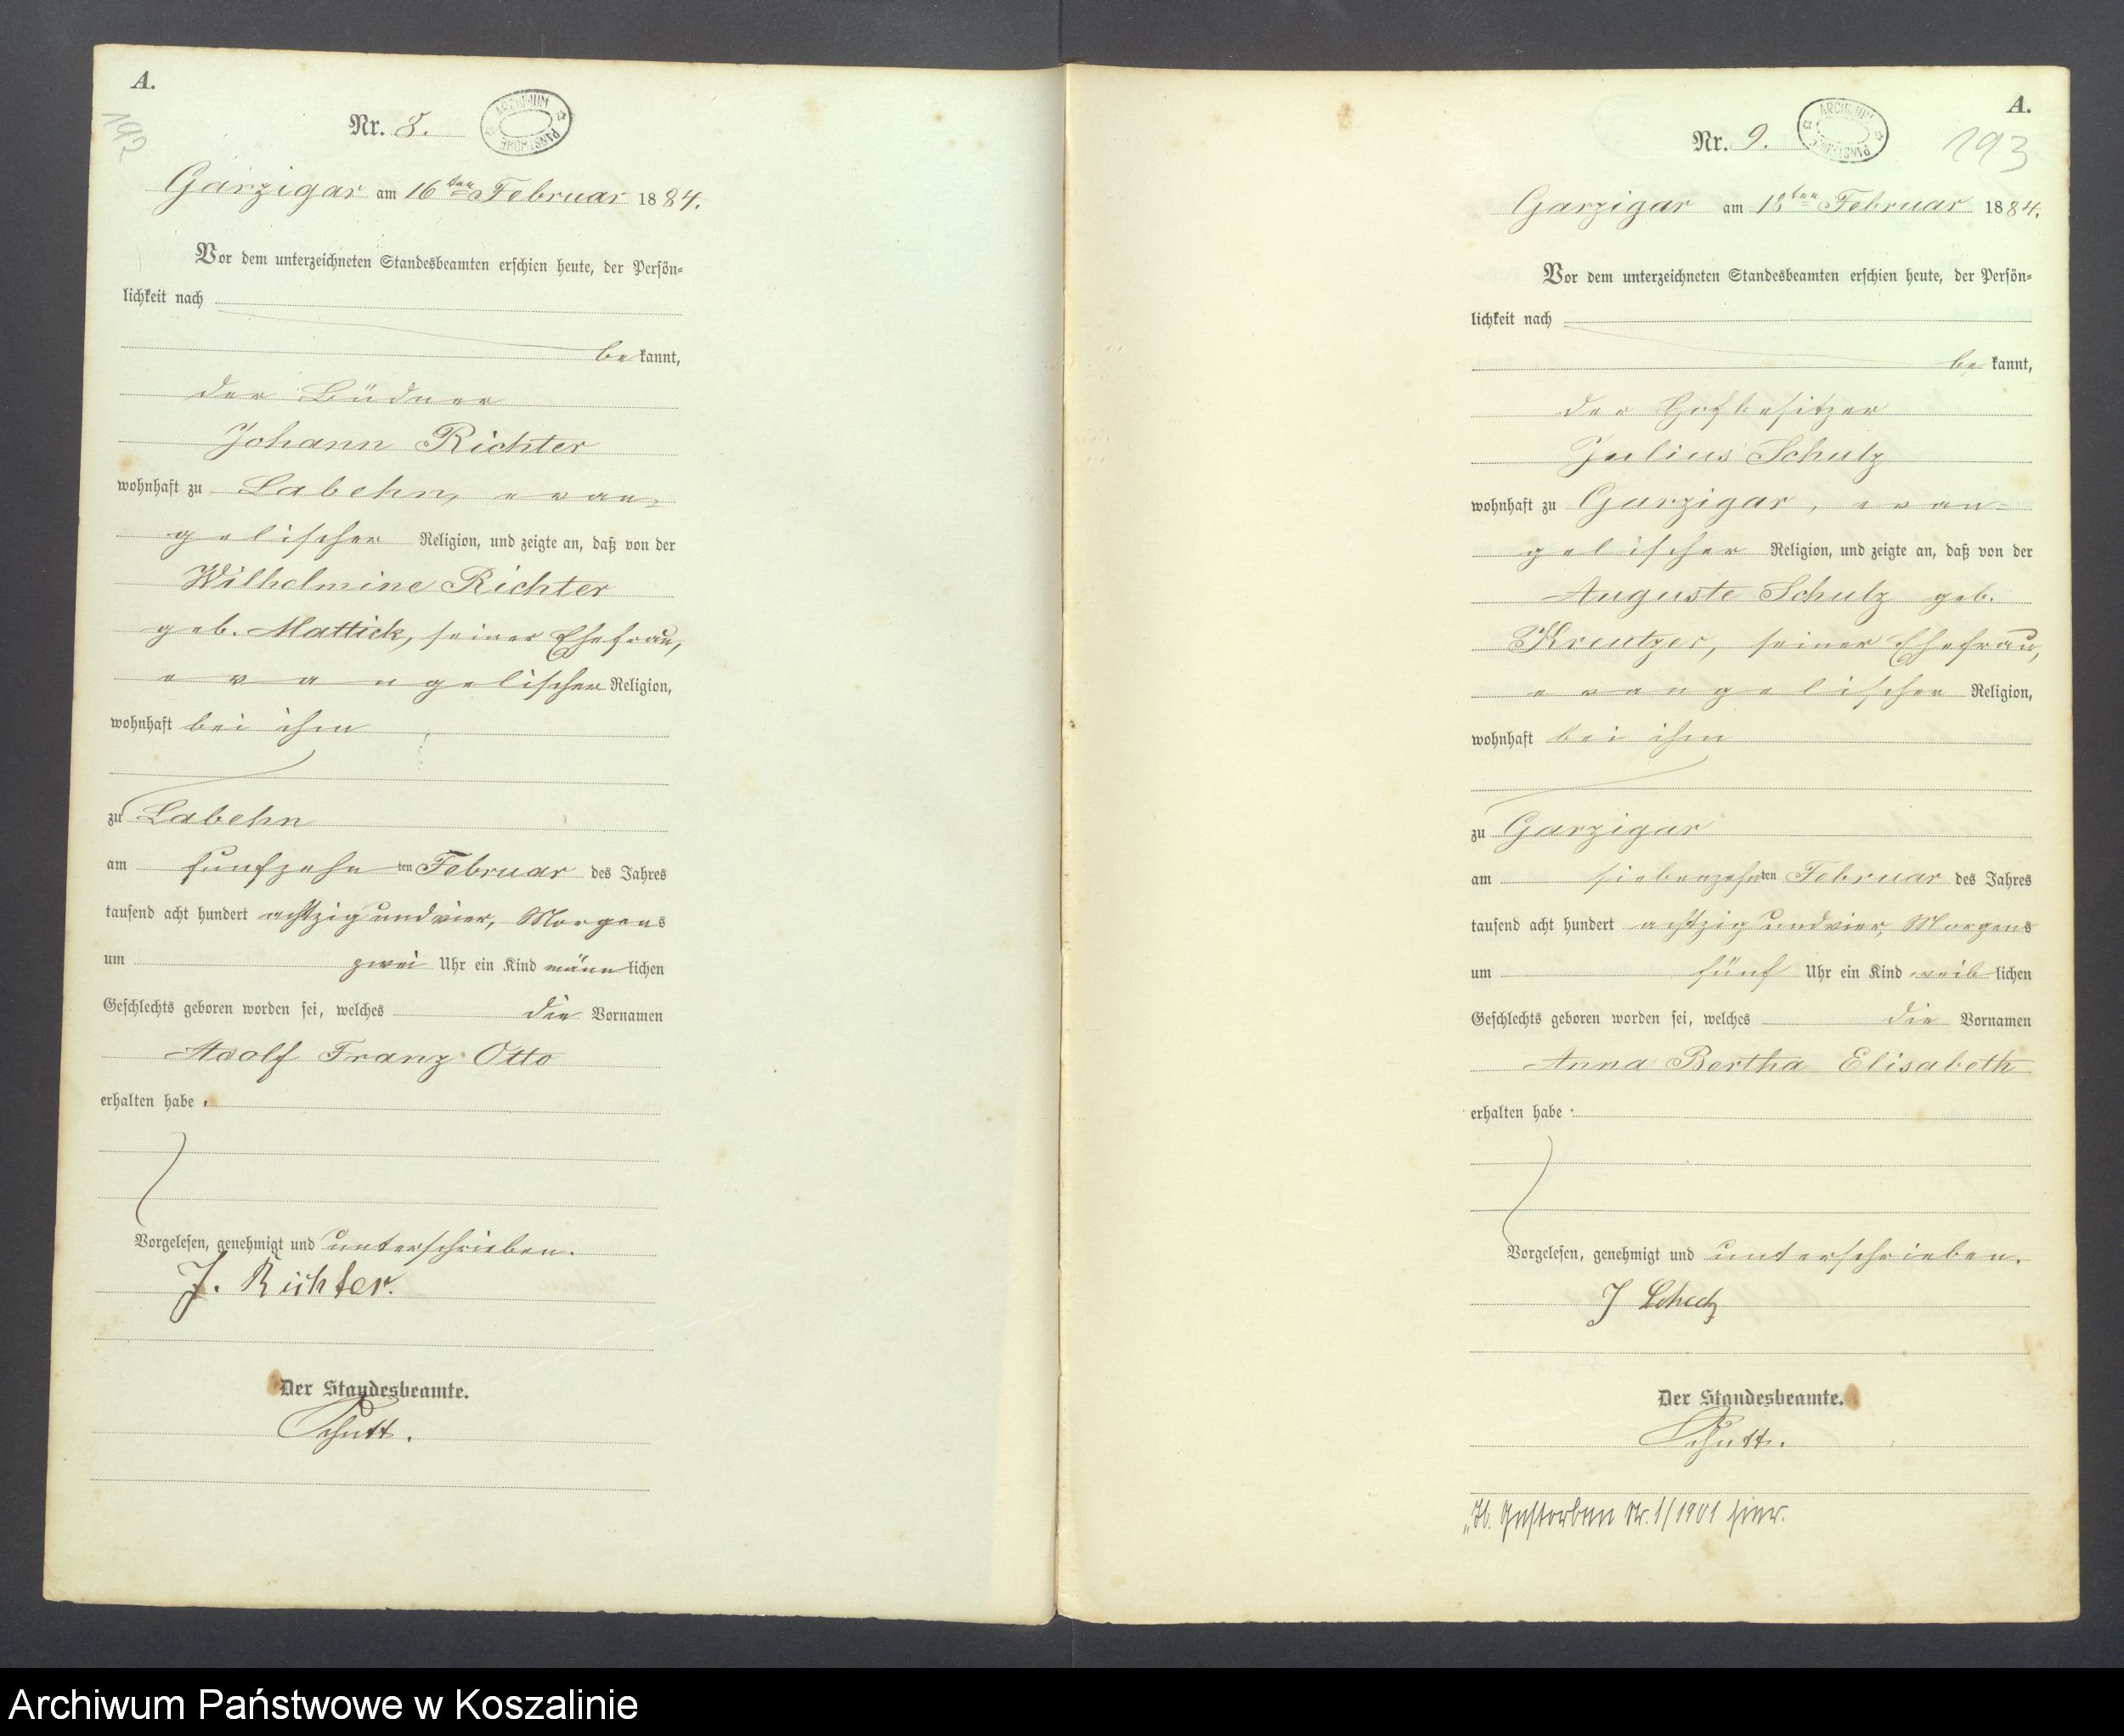 A.
192
Nr. 8.
ARCHIWUM PAŃSTWOWE
Garzigar am 16ten Februar 1884.
Vor dem unterzeichneten Standesbeamten erschien heute, der Persön=
lichkeit nach
be kannt,
der Büdner
Johann Richter
wohnhaft zu Labehn, evan=
gelischer Religion, und zeigte an, daß von der
Wilhelmine Richter
geb. Mattick, seiner Ehefrau,
evangelischer Religion,
wohnhaft bei ihm
zu Labehn
am fünfzehn ten Februar des Jahres
tausend acht hundert achtzig und vier, Morgens
um zwei Uhr ein Kind männ lichen
Geschlechts geboren worden sei, welches die Vornamen
Adolf Franz Otto
erhalten habe.
Vorgelesen, genehmigt und unterschrieben.
J. Richter.
Der Standesbeamte.
Schutt.
A.
193
Nr. 9.
ARCHIWUM PAŃSTWOWE
Garzigar am 18ten Februar 1884.
Vor dem unterzeichneten Standesbeamten erschien heute, der Persön=
lichkeit nach
be kannt,
der Hofbesitzer
Julius Schulz
wohnhaft zu Garzigar, evan=
gelischer Religion, und zeigte an, daß von der
Auguste Schulz geb.
Kreutzer, seiner Ehefrau,
evangelischer Religion,
wohnhaft bei ihm
zu Garzigar
am siebenzehn ten Februar des Jahres
tausend acht hundert achtzig und vier, Morgens
um fünf Uhr ein Kind weib lichen
Geschlechts geboren worden sei, welches die Vornamen
Anna Bertha Elisabeth
erhalten habe.
Vorgelesen, genehmigt und unterschrieben.
J Schulz
Der Standesbeamte.
Schutt.
Gestorben Nr. 1/1901 hier.
Archiwum Państwowe w Koszalinie